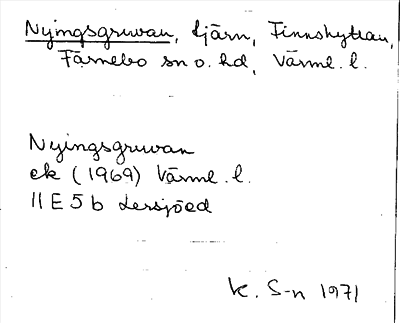 Nyingsgruvan, tjärn, Finnshyttan,
Färnebo sn o. hd, Värml. l.
Nyingsgruvan
ek (1969) Värml. l.
11 E 5 b Lersjöed
K. S-n 1971